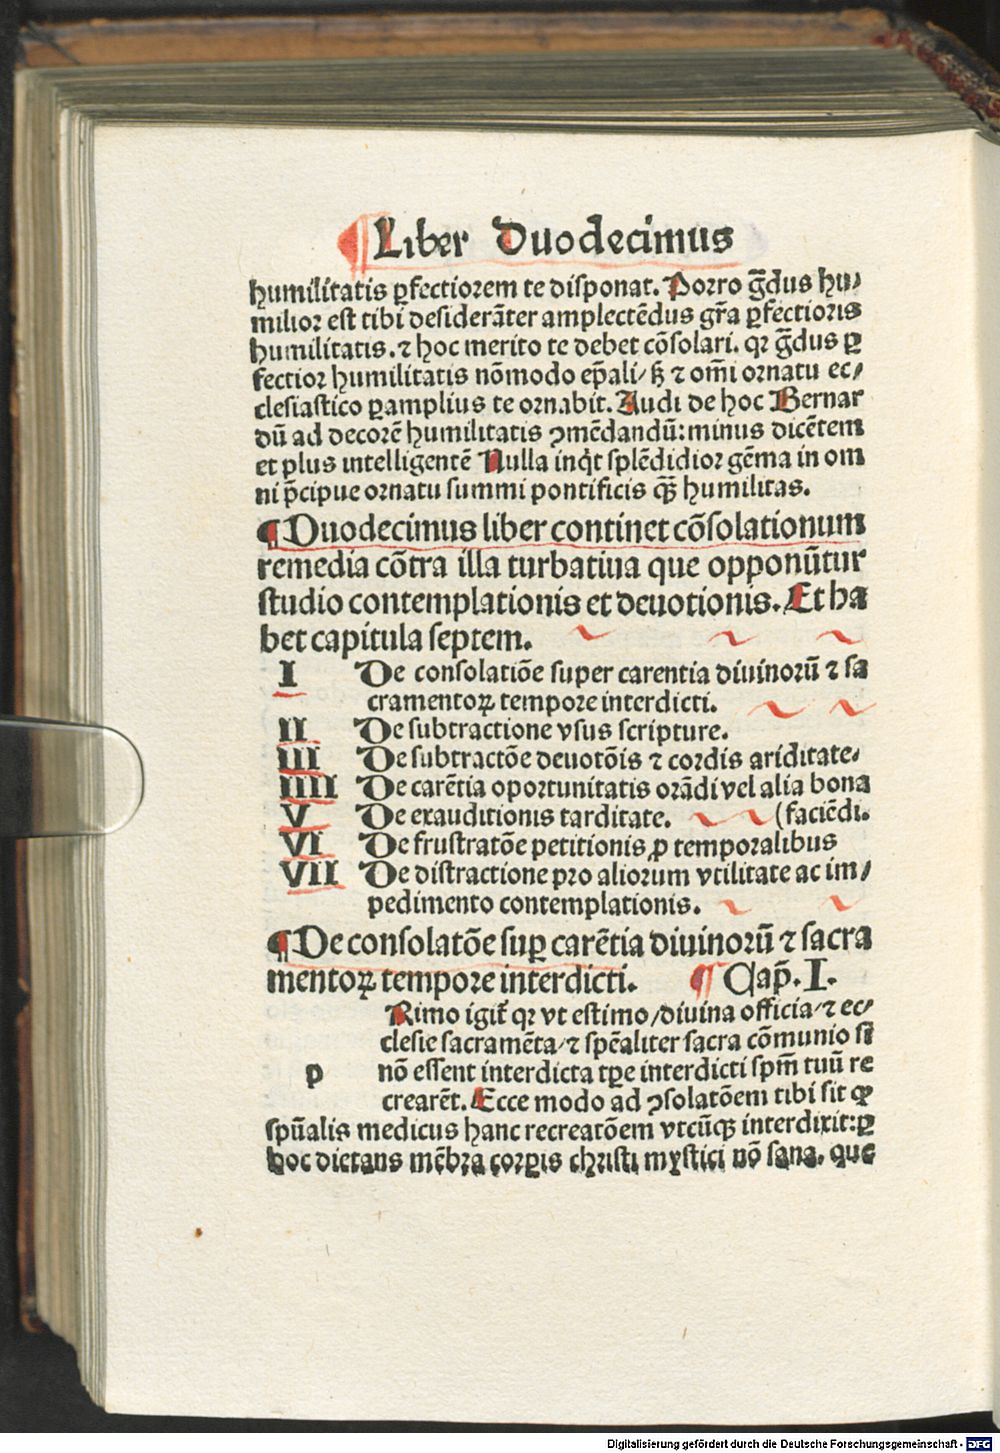 ¶Liber Duodecimus
humilitatis ꝑfectiorem te disponat. Porro g̃dus hu/
milior est tibi desiderãter amplectẽdus gr̃a ꝑfectioris
humilitatis. ⁊ hoc merito te debet cõsolari. qꝛ g̃dus ꝑ
fectior humilitatis nõmodo ep̃ali/ sꝫ ⁊ om̃i ornatu ec/
clesiastico ꝑamplius te ornabit. Audi de hoc Bernar
dũ ad decorẽ humilitatis ꝯmẽdandũ: minus dicẽtem
et plus intelligentẽ Nulla inq̃t splẽdidior gẽma in om
ni p̃cipue ornatu summi pontificis qꝫ̃ humilitas.
¶Duodecimus liber continet cõsolationum
remedia cõtra illa turbatiua que opponũtur
studio contemplationis et deuotionis. Et ha
bet capitula septem.
I De consolatiõe super carentia diuinorũ ⁊ sa
cramentoꝝ tempore interdicti.
II De subtractione vsus scripture.
III De subtractõe deuotõis ⁊ cordis ariditate.
IIII De carẽtia oportunitatis orãdi vel alia bona
V De exauditionis tarditate. (faciẽdi.
VI De frustratõe petitionis ꝓ temporalibus
VII De distractione pro aliorum vtilitate ac im/
pedimento contemplationis.
¶De consolatõe suꝑ carẽtia diuinorũ ⁊ sacra
mentoꝝ tempore interdicti. ¶ Cap̃. I.
Rimo igit̃ qꝛ vt estimo/ diuina officia/ ⁊ ec/
clesie sacramẽta/ ⁊ sp̃ealiter sacra cõmunio si
p nõ essent interdicta tp̃e interdicti sp̃m tuũ re
crearẽt. Ecce modo ad ꝯsolatõem tibi sit ꝙ
spũalis medicus hanc recreatõem vtcũqꝫ interdixit: ꝑ
hoc dictans mẽbra corꝑis christi mystici nõ sana. que
Digitalisierung gefördert durch die Deutsche Forschungsgemeinschaft - DFG